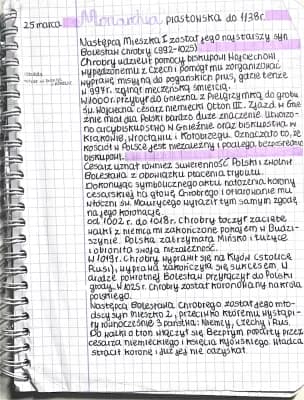 25 marca Monarchia piastowska do 1138r.
Następcą Mieszka I został jego najstarszy syn
Bolesław Chrobry (992-1025)
Chrobry udzielił pomocy biskupowi Wojciechowi
wypędzonemu z Czech i pomógł mu zorganizować
wyprawę misyjną do pogańskich prus, gdzie ten że
w 997r. zginął męczeńską śmiercią.
W 1000r przybył do Gniezna z Pielgrzymką do grobu
św. Wojciecha cesarz niemiecki Otton III. Zjazd w Gnie-
źnie miał dla Polski bardzo duże znaczenie. Utworzo-
no arcybiskupstwo w Gnieźnie oraz biskupstwa w
Krakowie, Wrocławiu i Kołobrzegu. Oznaczało to, że
kościół w Polsce jest niezależny i podlega bezpośrednio
biskupowi.
Cesarz uznał również suwerenność Polski zwolnił
Bolesława z obowiązku płacenia trybutu.
Dokonując symbolicznego aktu nałożenia korony
cesarskiej na głowę Chrobrego i ofiarowanie mu
włóczni św. Maurycego wyraził tym samym zgodę
na jego koronację.
od 1002 r. do 1018r. Chrobry toczył zacięte
walki z niemcami zakończone pokojem w Budzi-
szynie. Polska zatrzymała Mińsko i Łużyce
i obroniła swoją niezależność.
W 1018r. Chrobry wyprawił się na Kijów (stolicę
Rusi), wyprawa zakończyła się sukcesem W
drodze powrotnej Bolesław przyłączył do Polski
grody. W 1025r. Chrobry został koronowany na króla
polskiego.
Następcą Bolesława Chrobrego został jego mło-
dszy syn Mieszko 2, przeciwko któremu wystąpi-
ły równocześnie 3 państwa: Niemcy, Czechy i Rus.
Do walki o tron włączył się Bezprym poparty przez
cesarza niemieckiego i księcia Kijowskiego. Władca
stracił koronę i już jej nie odzyskał.